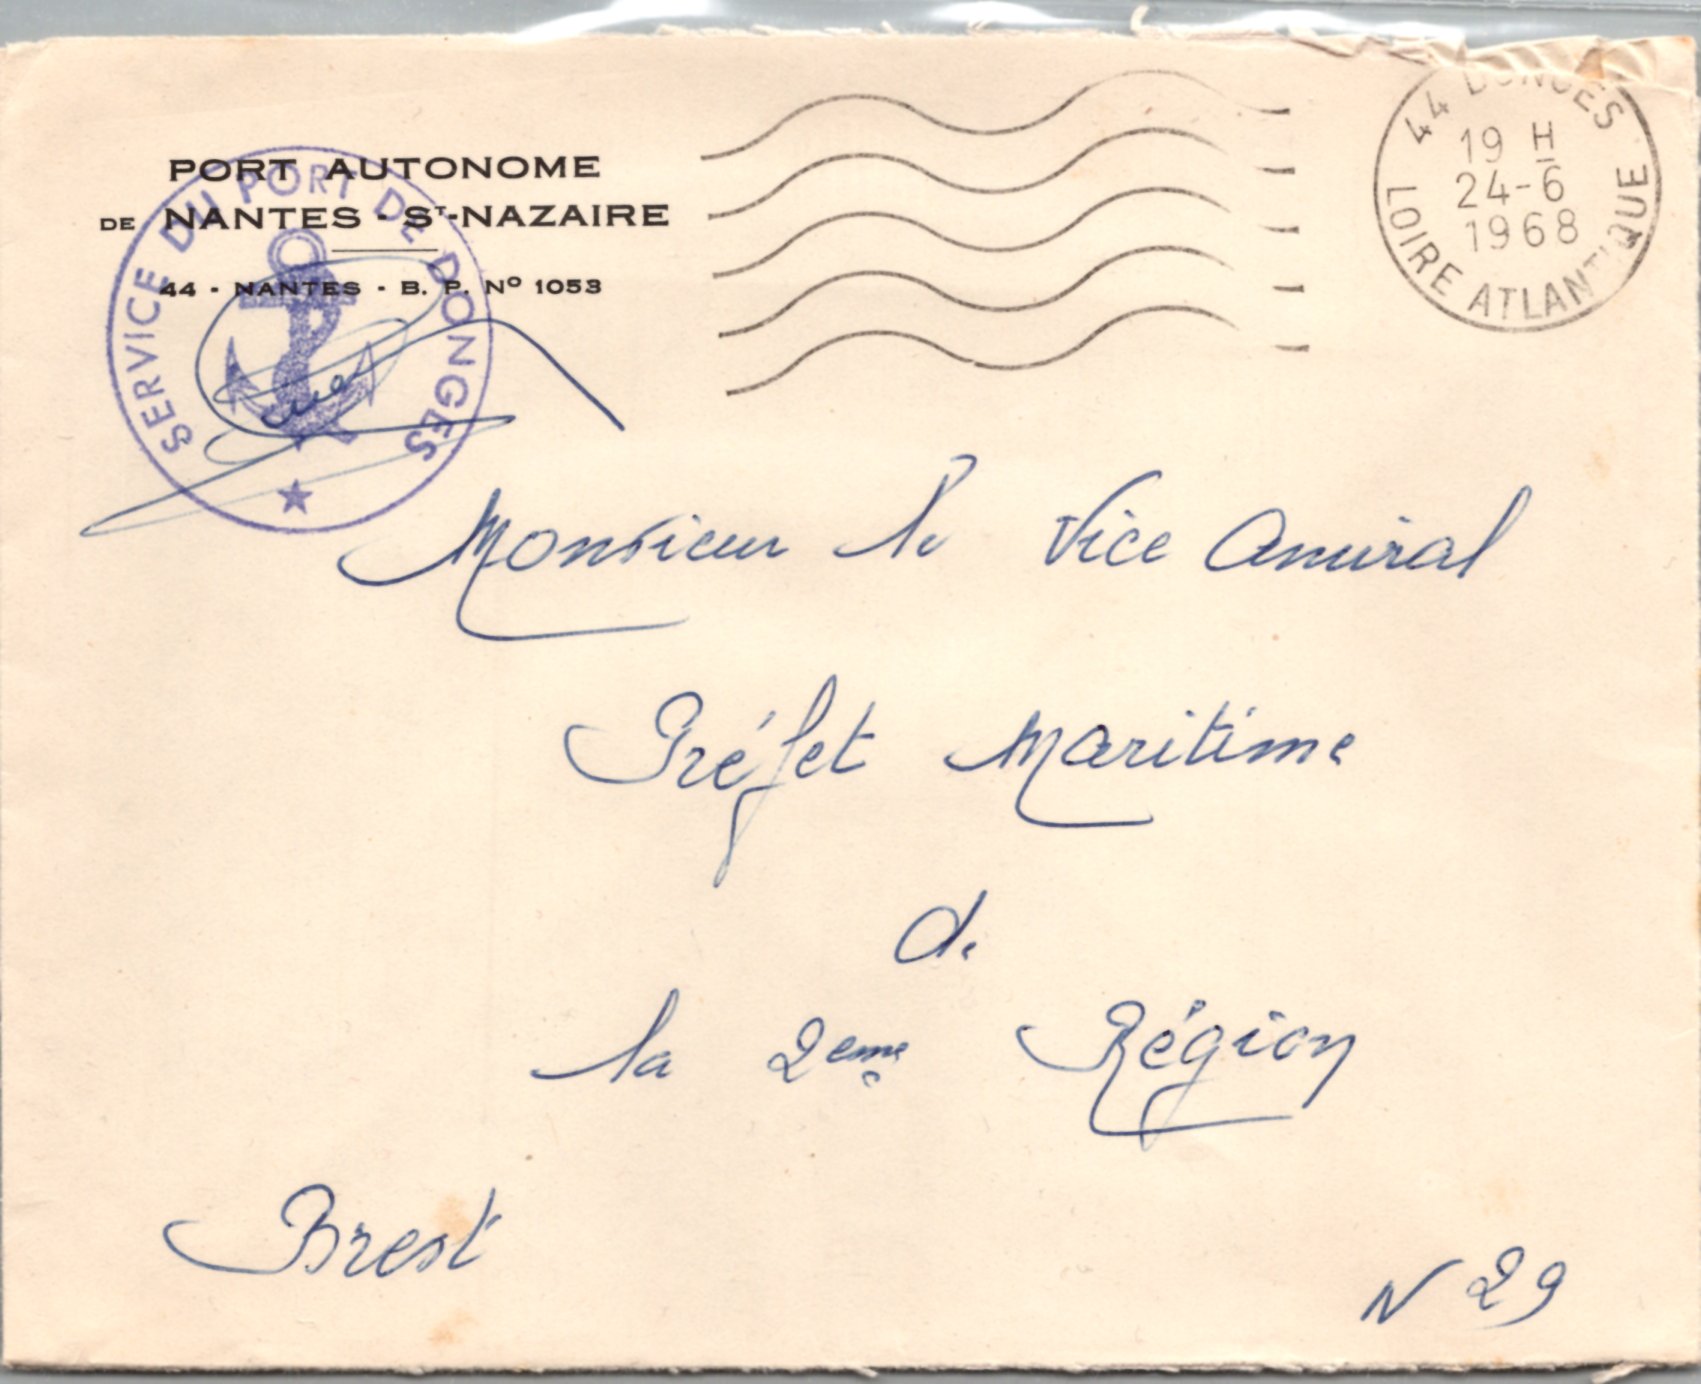 PORT AUTONOME
DE NANTES - ST-NAZAIRE
44 - NANTES - B. P. No 1053
SERVICE DU PORT DE DONGES
44 DONGES
19 H
24-6
1968
LOIRE ATLANTIQUE
Monsieur le Vice Amiral
Préfet Maritime
de
la 2eme Région
Brest
N 29